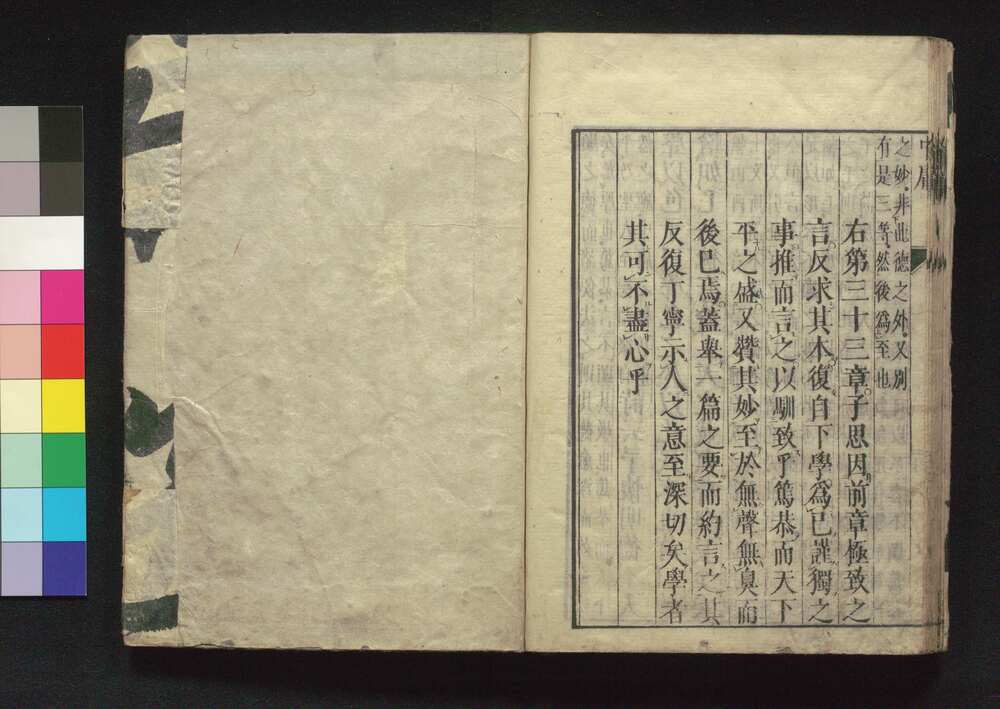 中庸
之妙非此德之外又別
有是三等然後爲至也
右第三十三章子思因前章極致之
言反求其本復自下學爲己謹獨之
事推而言之以馴致乎篤恭而天下
平之盛又贊其妙至於無聲無臭而
後已焉蓋舉一篇之要而約言之其
反復丁寧示人之意至深切矣學者
其可不盡心乎